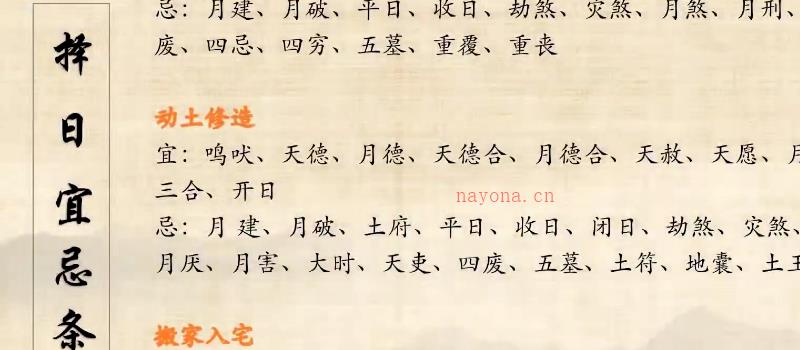 择日宜忌条
忌：月建、月破、平日、收日、劫煞、灾煞、月煞、月刑、
废、四忌、四穷、五墓、重覆、重丧
动土修造
宜：鸣吠、天德、月德、天德合、月德合、天赦、天愿、月
三合、开日
nayona.cn
忌：月 建、月破、土府、平日、收日、闭日、劫煞、灾煞、
月厌、月害、大时、天吏、四废、五墓、土符、地囊、土王
搬家入宅